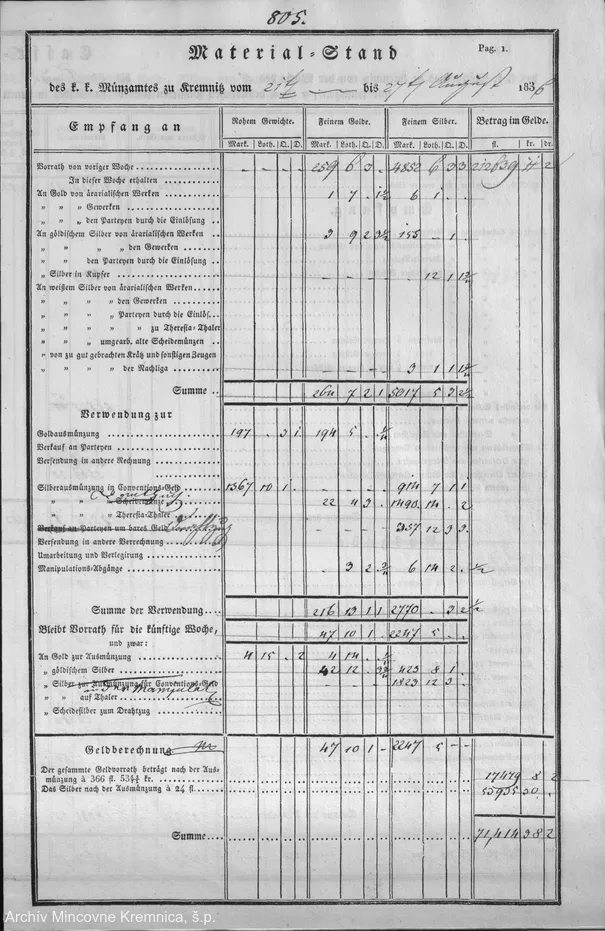 805.
Material-Stand Pag. 1.
des k. k. Münzamtes zu Kremnitz vom 21t bis 27t August 1836
Empfang an Rohem Gewichte. Feinem Golde. Feinem Silber. Betrag im Gelde.
Mark. Loth. Q. D. Mark. Loth. Q. D. Mark. Loth. Q. D. fl. kr. dr.
Vorrath von voriger Woche - - - - 259 6 3 - 4852 6 3 3 212639 11 2
In dieser Woche erhalten
An Gold von ärarialischen Werken 1 7 . 1½ 6 1 . .
„ „ Gewerken
„ „ „ den Parteyen durch die Einlösung
An göldischem Silber von ärarialischen Werken 3 9 2 3½ 155 - 1 .
„ „ „ „ den Gewerken
„ „ den Parteyen durch die Einlösung
„ Silber in Kupfer - - - - 12 1 1½
An weißem Silber von ärarialischen Werken
„ „ „ „ den Gewerken
„ „ „ „ Parteyen durch die Einlös.
„ „ „ „ zu Theresia-Thaler
„ „ „ umgearb. alte Scheidemünzen
„ von zu gut gebrachten Krätz und sonstigen Zeugen
„ „ „ „ der Nachliga - - - - 3 1 1
Summe 264 7 2 1 5017 5 3 2½
Verwendung zur
Goldausmünzung 197 . 3 1 194 5 .
Verkauf an Parteyen
Versendung in andere Rechnung
Silberausmünzung in Conventions-Geld 1367 10 1 - - - - 914 7 1 1
„ „ Scheidemünze 22 4 3 . 1490 14 . 2
„ „ Theresia-Thaler
Verkauf an Parteyen um bares Geld 357 12 3 3
Versendung in andere Verrechnung
Umarbeitung und Verlegirung
Manipulations-Abgänge . 3 2 6 14 2 . ½
Summe der Verwendung 216 13 1 1 2770 . 3 2 ½
Bleibt Vorrath für die künftige Woche, 47 10 1 - 2247 5 - -
und zwar:
An Gold zur Ausmünzung 4 15 . 2 4 14 .
„ göldischem Silber 42 12 . 423 8 1 .
„ Silber zur Ausmünzung für Conventions-Geld - - - - 1823 12 3 .
„ „ auf Thaler
„ Scheidesilber zum Drahtzug
Geldberechnung 47 10 1 - 2247 5 - -
Der gesammte Geldvorrath beträgt nach der Aus-
münzung à 366 fl. kr. 17479 8 2
Das Silber nach der Ausmünzung à 24 fl. 53935 30 .
Summe 71,414 38 2
Archív Mincovne Kremnica, š.p.